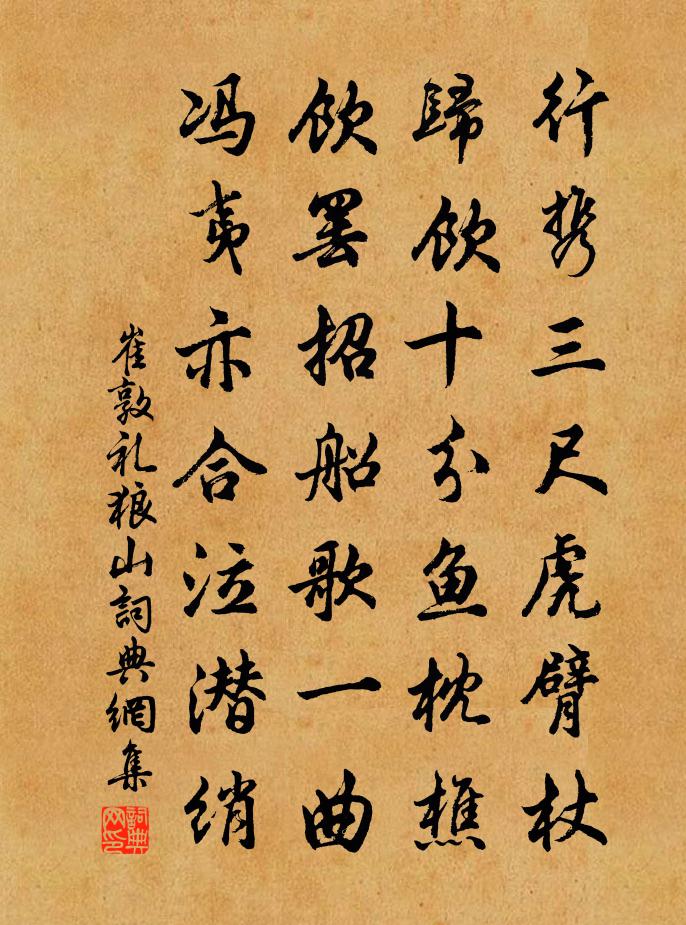 行携三尺虎臂杖
歸飲十分鱼枕樵
飲罢招船歌一曲
冯夷亦合泣潜绡
崔敦礼狼山詞典網集
詞典网印